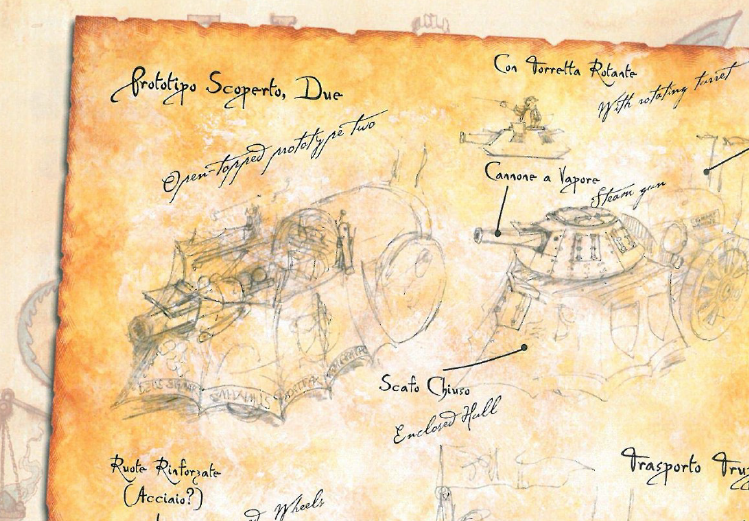 Prototipo Scoperto, Due
Open-topped prototype two
Con Torretta Rotante
With rotating turret
Cannone a Vapore
Steam gun
Scafo Chiuso
Enclosed Hull
Ruote Rinforzate
(Acciaio?)
Wheels
Trasporto